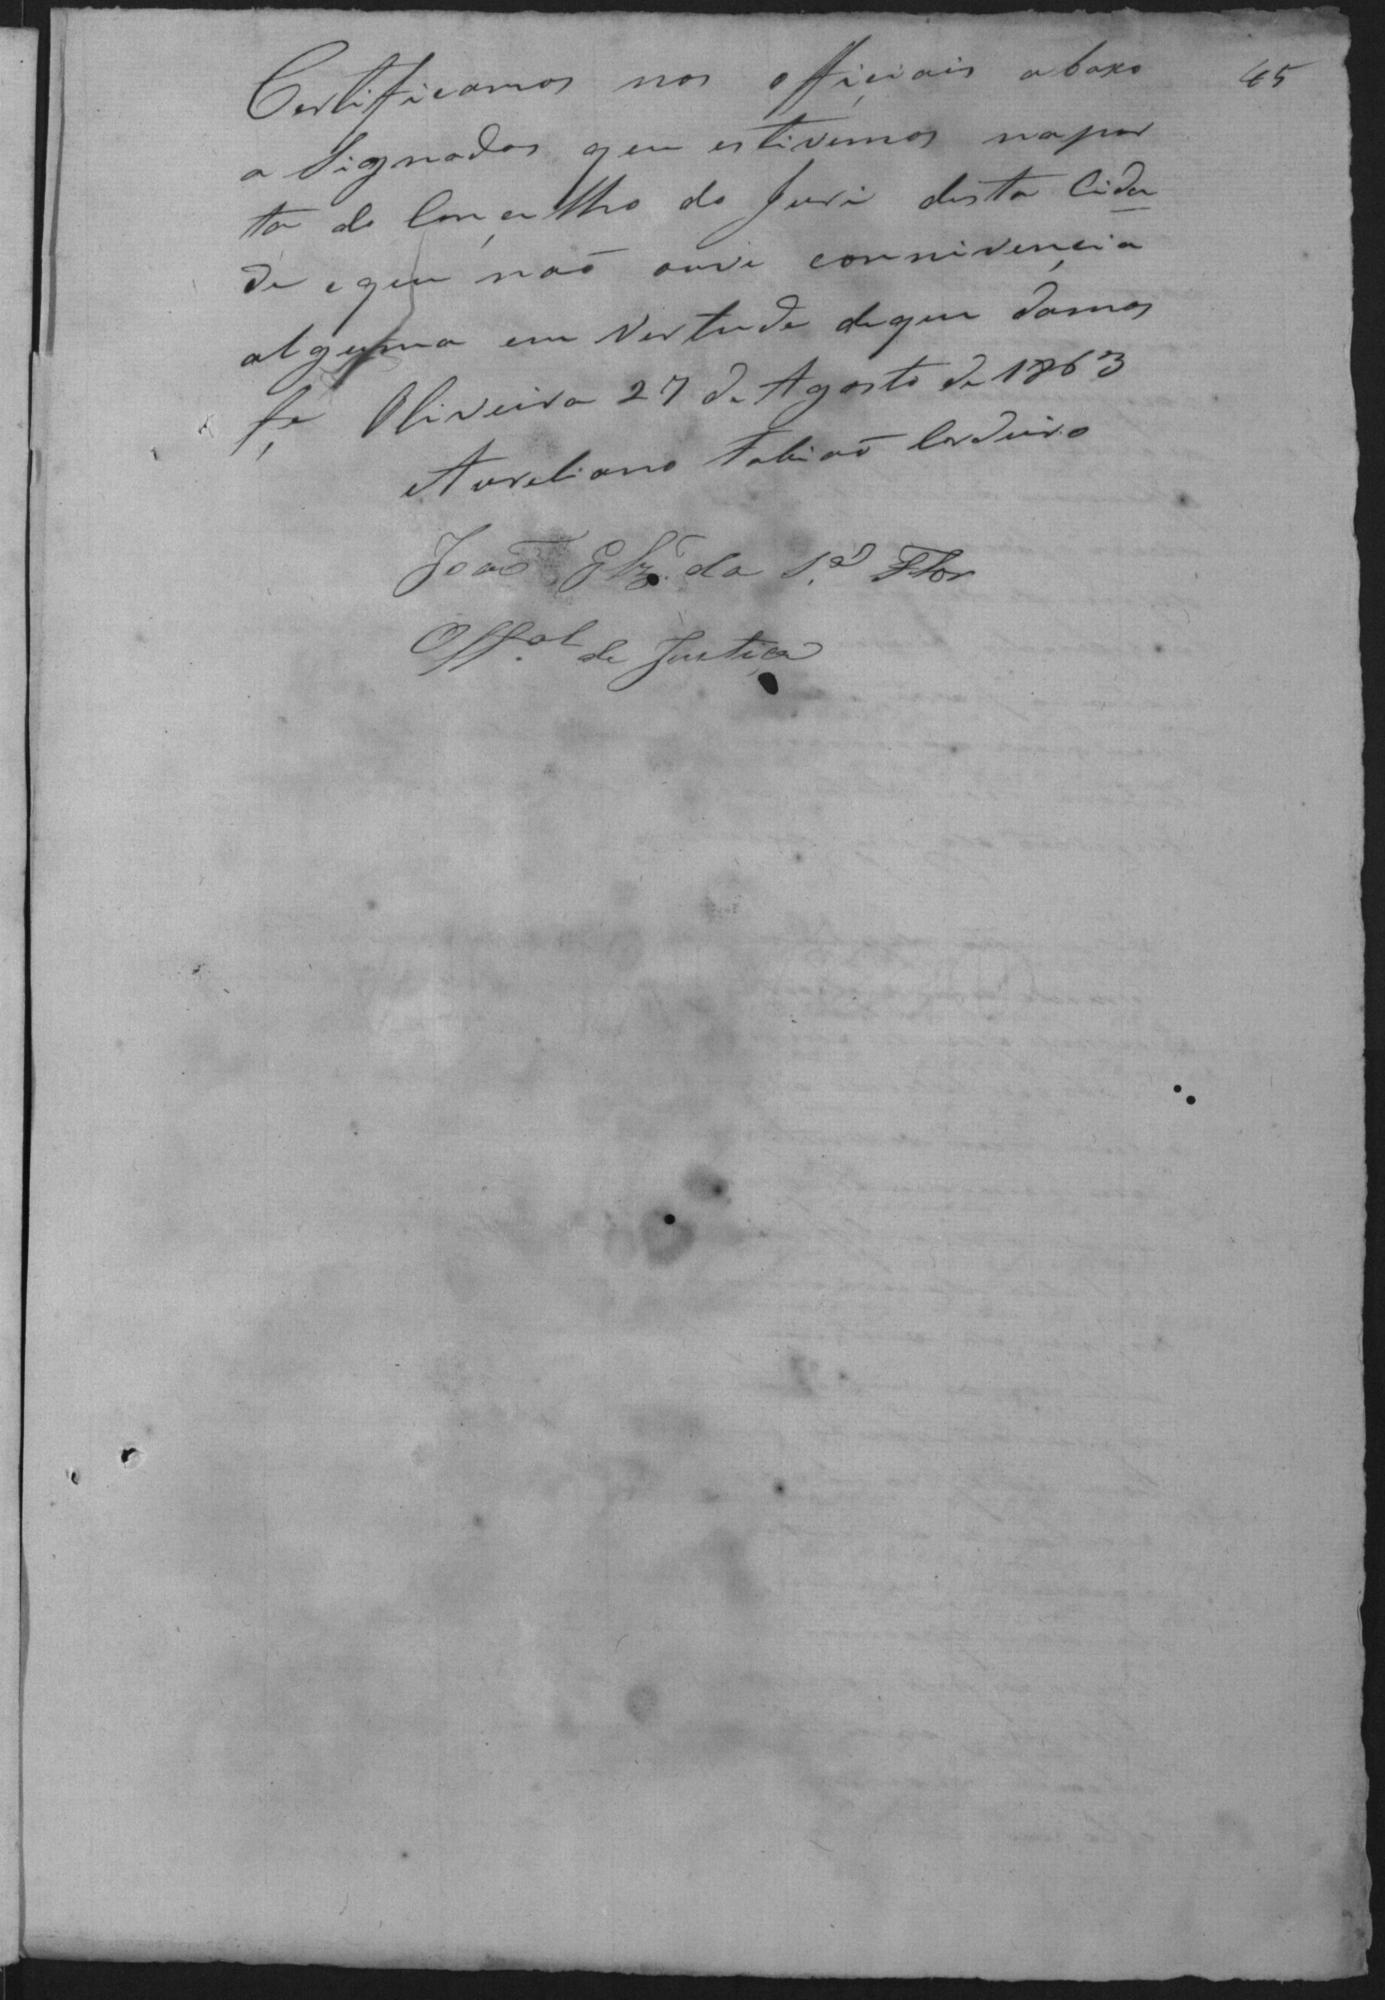 45
Certificamos nos officiais abaxo
a Signados que estivemos napor
ta do Concelho do Juri desta Cida
de eque não ouve connivencia
alguma em Vertude deque damos
fe Oliveira 27 de Agosto de 1863
Aureliano Fabião Cordeiro
João da S.ª Flor
Off.al de Justiça